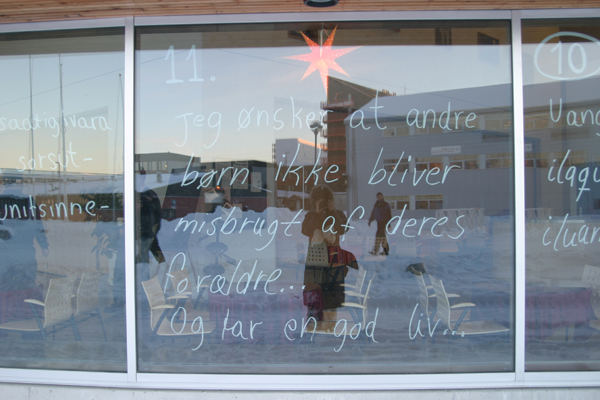 saatigivara
sorsut-
unitsinne-
11.
Jeg ønsker at andre
børn ikke bliver
misbrugt af deres
forældre...
Og tar en god liv...
10
ilaqu
iluan